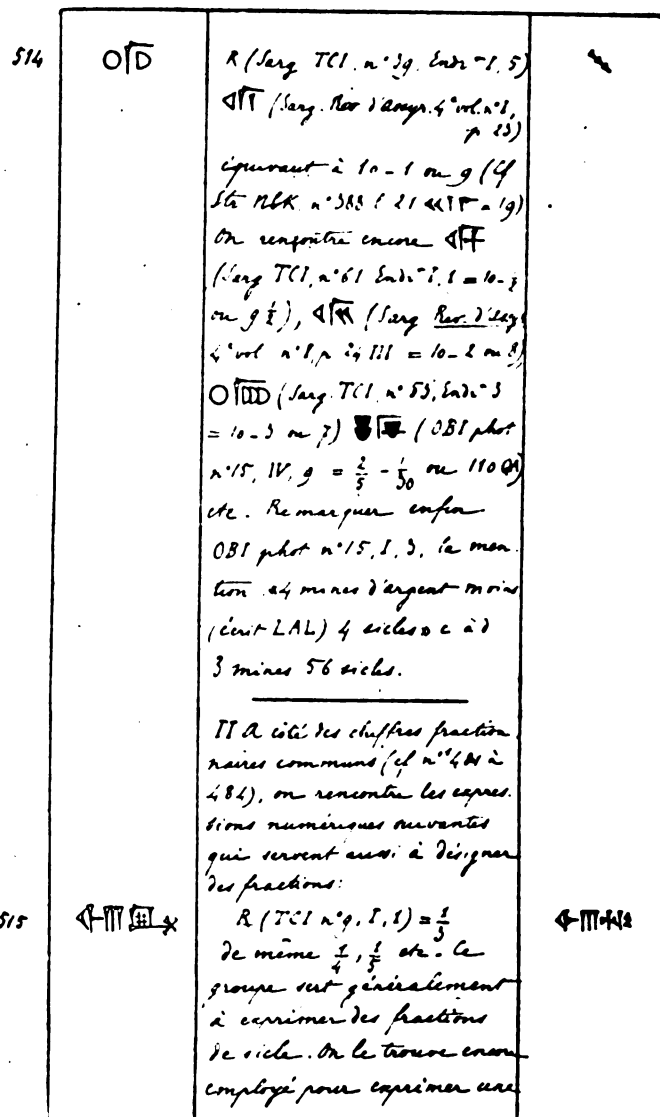 514
R (Sarg TCI. n° 39. Endr-I, 5)
(Sarg. Rev d'assyr. 4° vol. n° I,
p 23)
équivaut à 10-1 ou 9 (Cf
Str NbK. n° 388 l 21 = 19)
On rencontre encore
(Sarg TCI, n° 61 Endr-I, 1 = 10-
ou 9 1/2), (Sarg Rev. d'assy
4° vol n° I, p 24 III = 10-2 ou 8)
(Sarg. TCI. n° 53, Endr-3
= 10-3 ou 7) (OBI phot
n° 15, IV, 9 = 2/5 - 1/30 ou 110 QA)
etc. Remarquer enfin
OBI phot n° 15, I, 3, la men
tion «4 mines d'argent moins
(écrit LAL) 4 sicles» c à d
3 mines 56 sicles.
II A côté des chiffres fraction
naires communs (cf n°s à
484), on rencontre les expres.
sions numériques suivantes
qui servent aussi à désigner
des fractions:
515
R (TCI n° 9, I, 1) = 1/3
de même 1/4, 1/5 etc. Ce
groupe sert généralement
à exprimer des fractions
de sicle. On le trouve encore
employé pour exprimer une